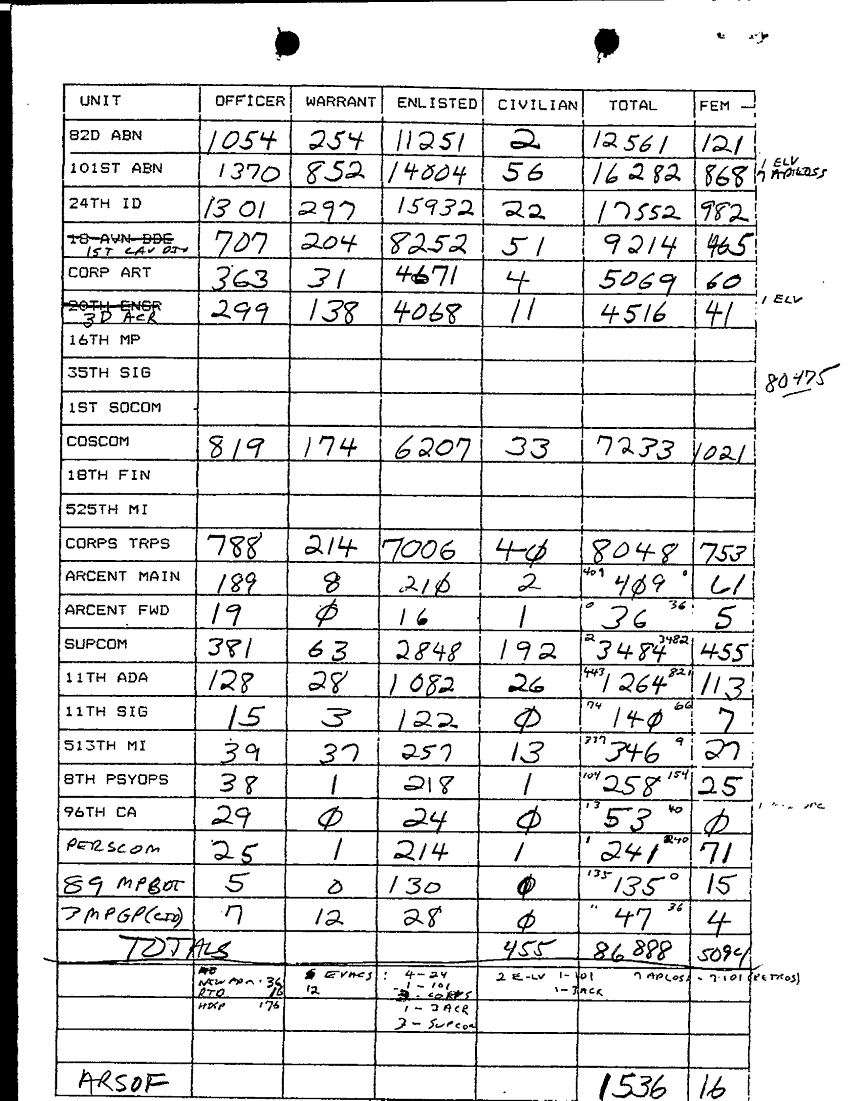 UNIT OFFICER WARRANT ENLISTED CIVILIAN TOTAL FEM
82D ABN 1054 254 11251 2 12561 121
101ST ABN 1370 852 14004 56 16282 868 1 ELV
24TH ID 1301 297 15932 22 17552 982
18 AVN BDE 1ST CAV DIV 707 204 8252 51 9214 465
CORP ART 363 31 4671 4 5069 60
20TH ENGR 3D ACR 299 138 4068 11 4516 41 1 ELV
16TH MP
35TH SIG 80475
1ST SOCOM
COSCOM 819 174 6207 33 7233 1021
18TH FIN
525TH MI
CORPS TRPS 788 214 7006 4φ 8048 753
ARCENT MAIN 189 8 21φ 2 409 4φ9 0 61
ARCENT FWD 19 φ 16 1 0 36 36 5
SUPCOM 381 63 2848 192 2 3484 3482 455
11TH ADA 128 28 1082 26 443 1264 821 113
11TH SIG 15 3 122 φ 74 14φ 66 7
513TH MI 39 37 257 13 337 346 9 27
8TH PSYOPS 38 1 218 1 104 258 154 25
96TH CA 29 φ 24 φ 13 53 40 φ
PERSCOM 25 1 214 1 1 241 240 71
89 MPBDT 5 0 130 φ 135 135 0 15
7MPGP(CID) 7 12 28 φ 11 47 36 4
TOTALS 455 86888 5094
36 EVACS: 4-24 2 E-LV 1-101
RTD 16 12 1-101 1-3ACR
176 CORPS
1-3ACR
3-SUPCOM
ARSOF 1536 16